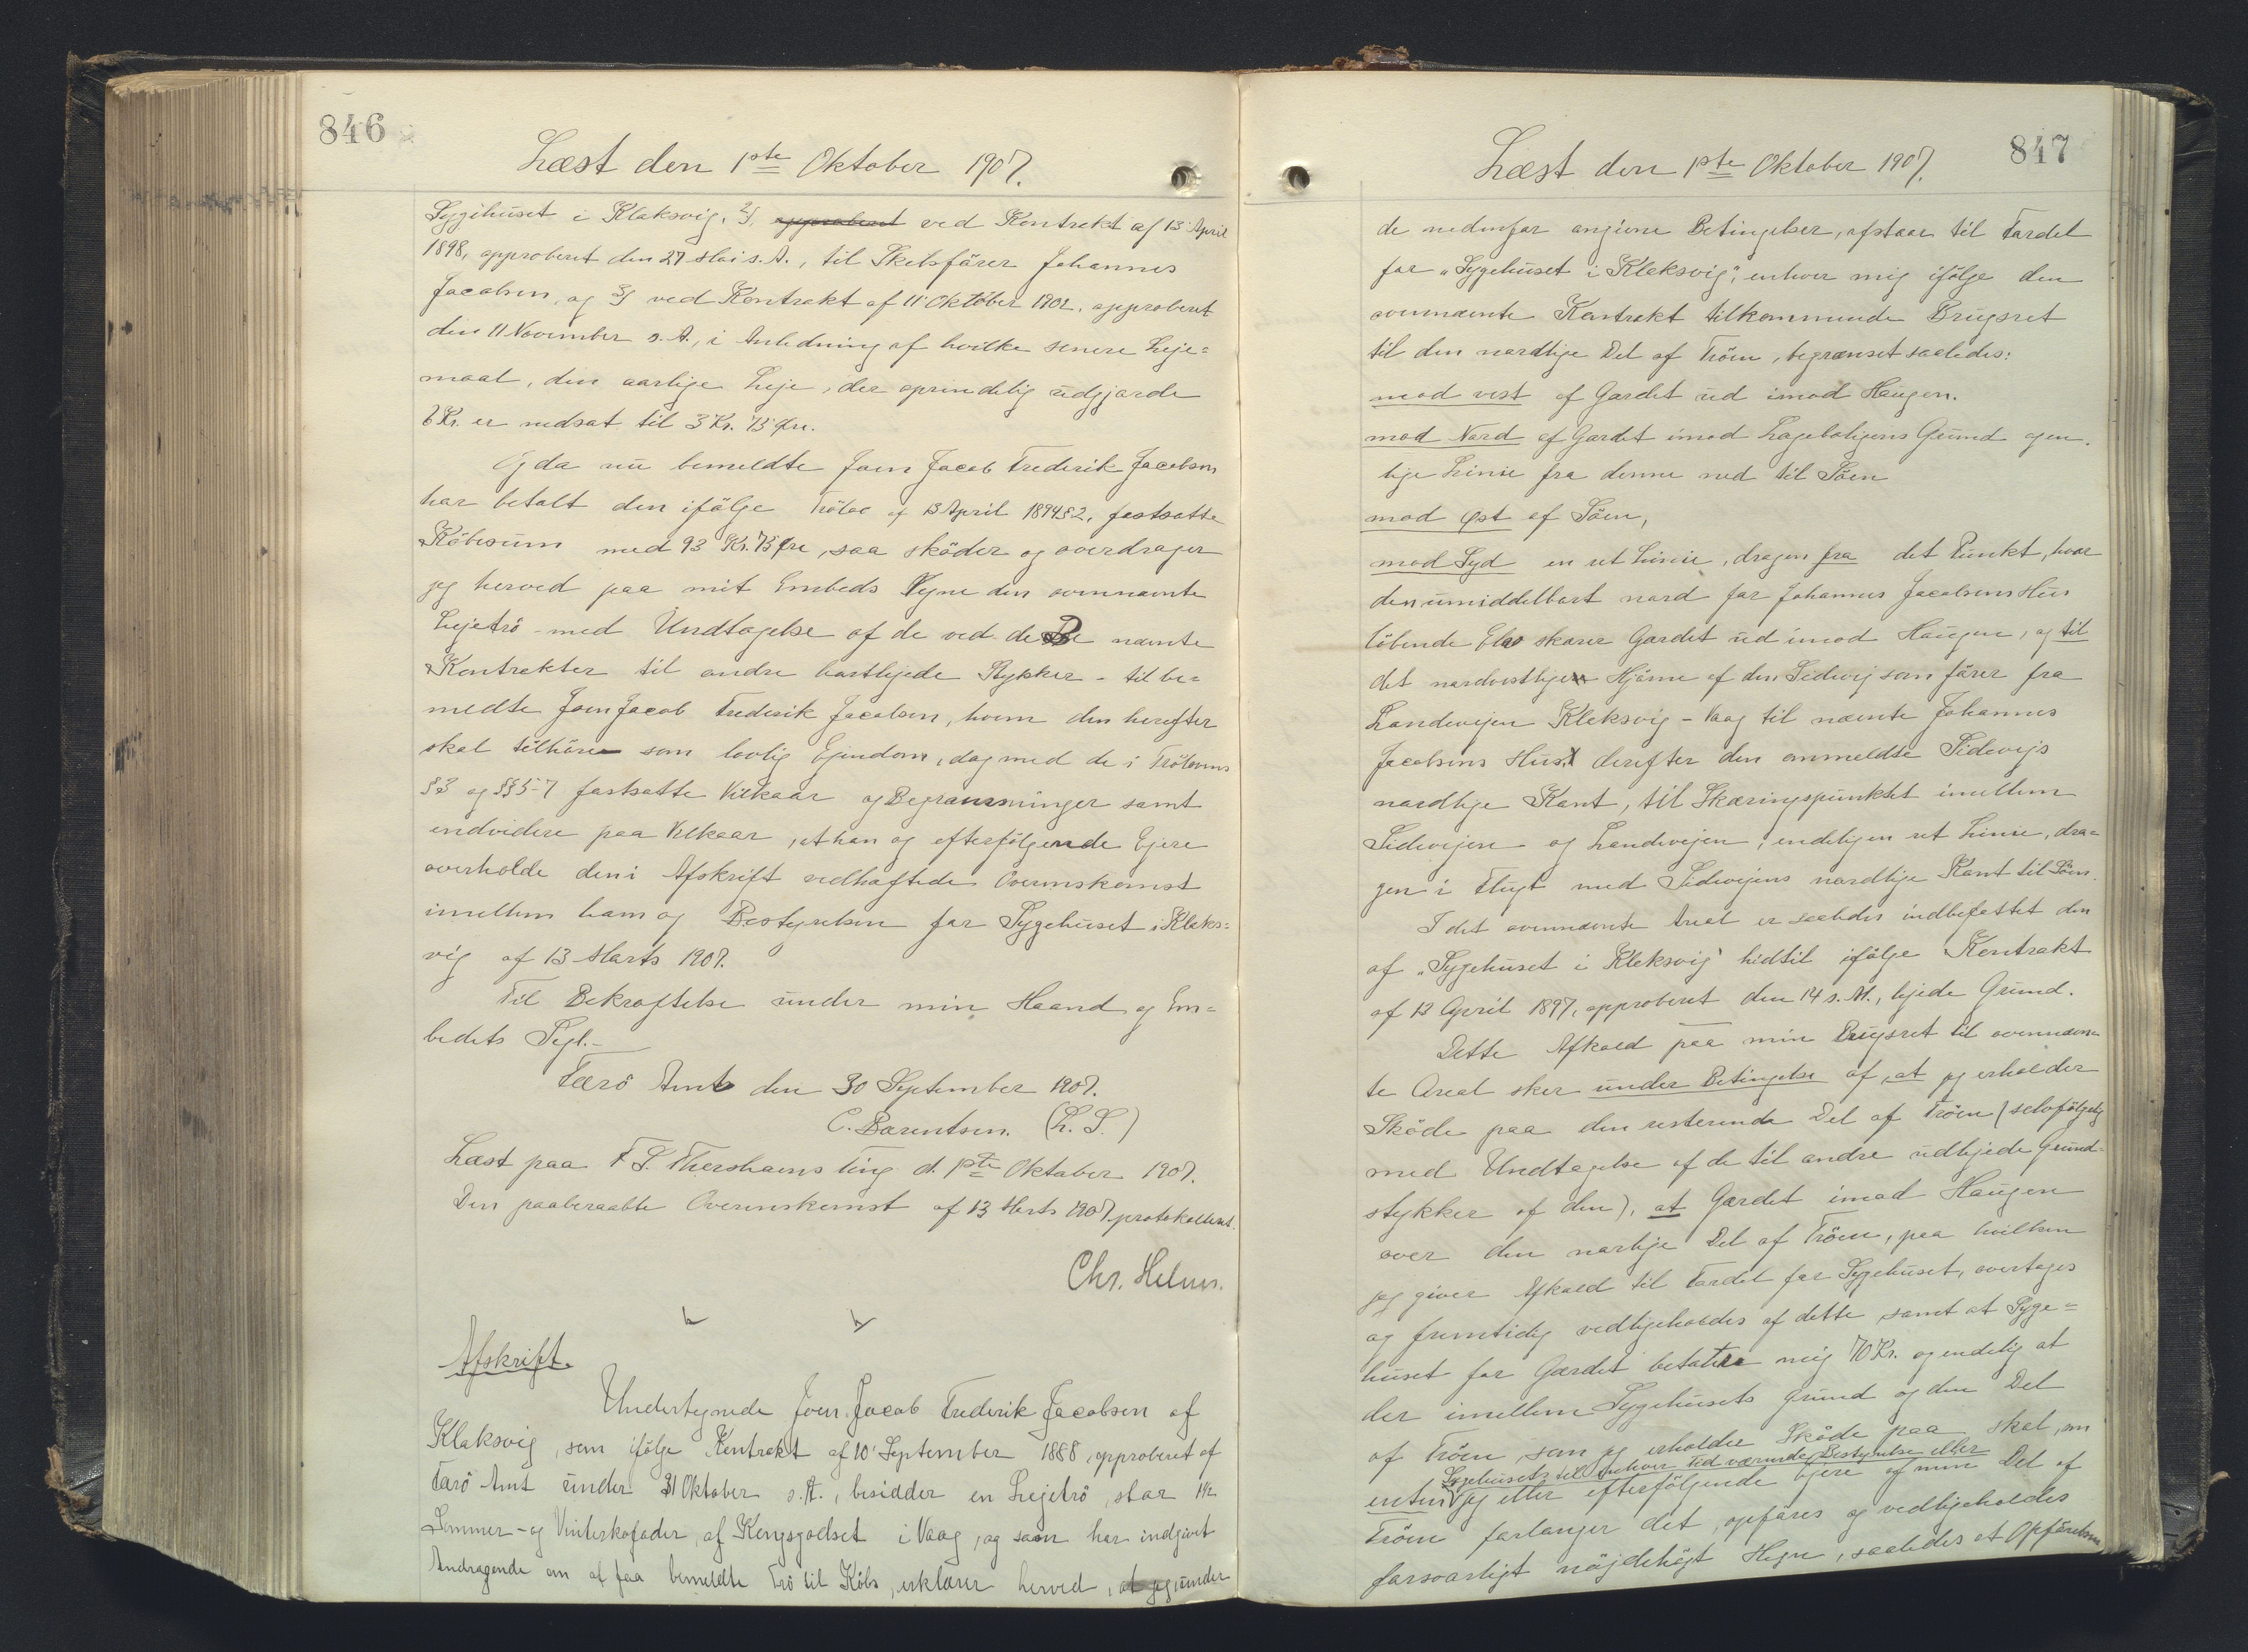 846
Læst den 1ste Oktober 1907.
Sygehuset i Klaksvig, 2/, approberet ved Kontrakt af 13 April
1898, approberet den 27 Mai s. A., til Skibsfører Johannes
Jacobsen, og 3/ ved Kontrakt af 11 Oktober 1902, approberet
den 11 November s. A., i Anledning af hvilke senere Leje=
maal, den aarlige Leje, der oprindelig udgjorde
6 Kr. er nedsat til 3 Kr. 75 Øre.
Og da nu bemeldte Joen Jacob Frederik Jacobsen
har betalt den ifølge Trölov af 13 April 1894 § 2, fastsatte
Köbesum med 93 Kr. 75 Øre, saa sköder og overdrager
jeg herved paa mit Embeds Vegne den ovennævnte
Lejetrö - med Undtagelse af de ved de nævnte
Kontrakter til andre bortlejede Stykker - til be=
meldte Joen Jacob Frederik Jacobsen, hvem den herefter
skal tilhöre som lovlig Ejendom, dog med de i Trölovens
§ 3 og §§ 5-7 fastsatte Vilkaar og Begrænsninger samt
endvidere paa Vilkaar, at han og efterfølgende Ejere
overholde den i Afskrift vedhæftede Overenskomst
imellem ham og Bestyrelsen for Sygehuset i Klaks=
vig af 13 Marts 1907.
Til Bekræftelse under min Haand og Em=
bedets Segl.-
Færö Amt den 30 September 1907.
C. Bærentsen. (L. S.)
Læst paa F. S. Thorshavns Ting d. 1ste Oktober 1907.
Den paaberaabte Overenskomst af 13 Marts 1907 protokolleret.
Chr. Helms.
Afskrift.
Undertegnede Joen Jacob Frederik Jacobsen af
Klaksvig, som ifölge Kontrakt af 10 September 1888, approberet af
Færö Amt under 31 Oktober s. A., besidder en Lejetrö, stor
Sommer- og Vinterkofoder, af Kongsgodset i Vaag, og som har indgivet
Andragende om at faa bemeldte Trö til Köbs, erklærer herved, at jeg, under
847
Læst den 1ste Oktober 1907.
de nedenfor angivne Betingelser, afstaar til Fordel
for „Sygehuset i Klaksvig“, enhver mig ifölge den
ovennævnte Kontrakt tilkommende Brugsret
til den nordlige Del af Tröen, begrænset saaledes:
mod vest af Gærdet ud imod Haugen.
mod Nord af Gærdet imod Lægeboligens Grund og en
lige Linie fra denne ned til Söen
mod Øst af Söen,
mod Syd en ret Linie, dragen fra det Punkt, hvor
den umiddelbart nord for Johannes Jacobsens Hus
löbende Elv skærer Gærdet ud imod Haugen, og til
det nordvestlige Hjörne af den Sidevej som förer fra
Landevejen Klaksvig - Vaag til nævnte Johannes
Jacobsens Hus, derefter den ommeldte Sidevejs
nordlige Kant, til Skæringspunktet imellem
Sidevejen og Landevejen; endelig en ret Linie, dra=
gen i Flugt med Sidevejens nordlige Kant til Söen.
I det ovennævnte Areal er saaledes indbefattet den
af „Sygehuset i Klaksvig“ hidtil ifölge Kontrakt
af 13 April 1897, approberet den 14 s. M., lejede Grund.
Dette Afkald paa min Brugsret til ovennævn=
te Areal sker under Betingelse af, at jeg erholder
Sköde paa den resterende Del af Tröen (selvfölgelig
med Undtagelse af de til andre udlejede Grund=
stykker af den), at Gærdet imod Haugen
over den nordlige Del af Tröen, paa hvilken
jeg giver Afkald til Fordel for Sygehuset, overtages
og fremtidig vedligeholdes af dette samt at Syge=
huset for Gærdet betaler mig 70 Kr. og endelig at
der imellem Sygehusets Grund og den Del
af Tröen som jeg erholder Sköde paa skal, om
Sygehusets til enhver Tid værende Bestyrelse eller
enten jeg eller efterfölgende Ejere af min Del af
Tröen forlanger det, opföres og vedligeholdes
forsvarligt nöjdehögt Hegn, saaledes at Opförelsen